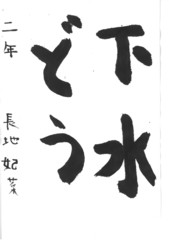 下水
どう
二年 長地 妃菜